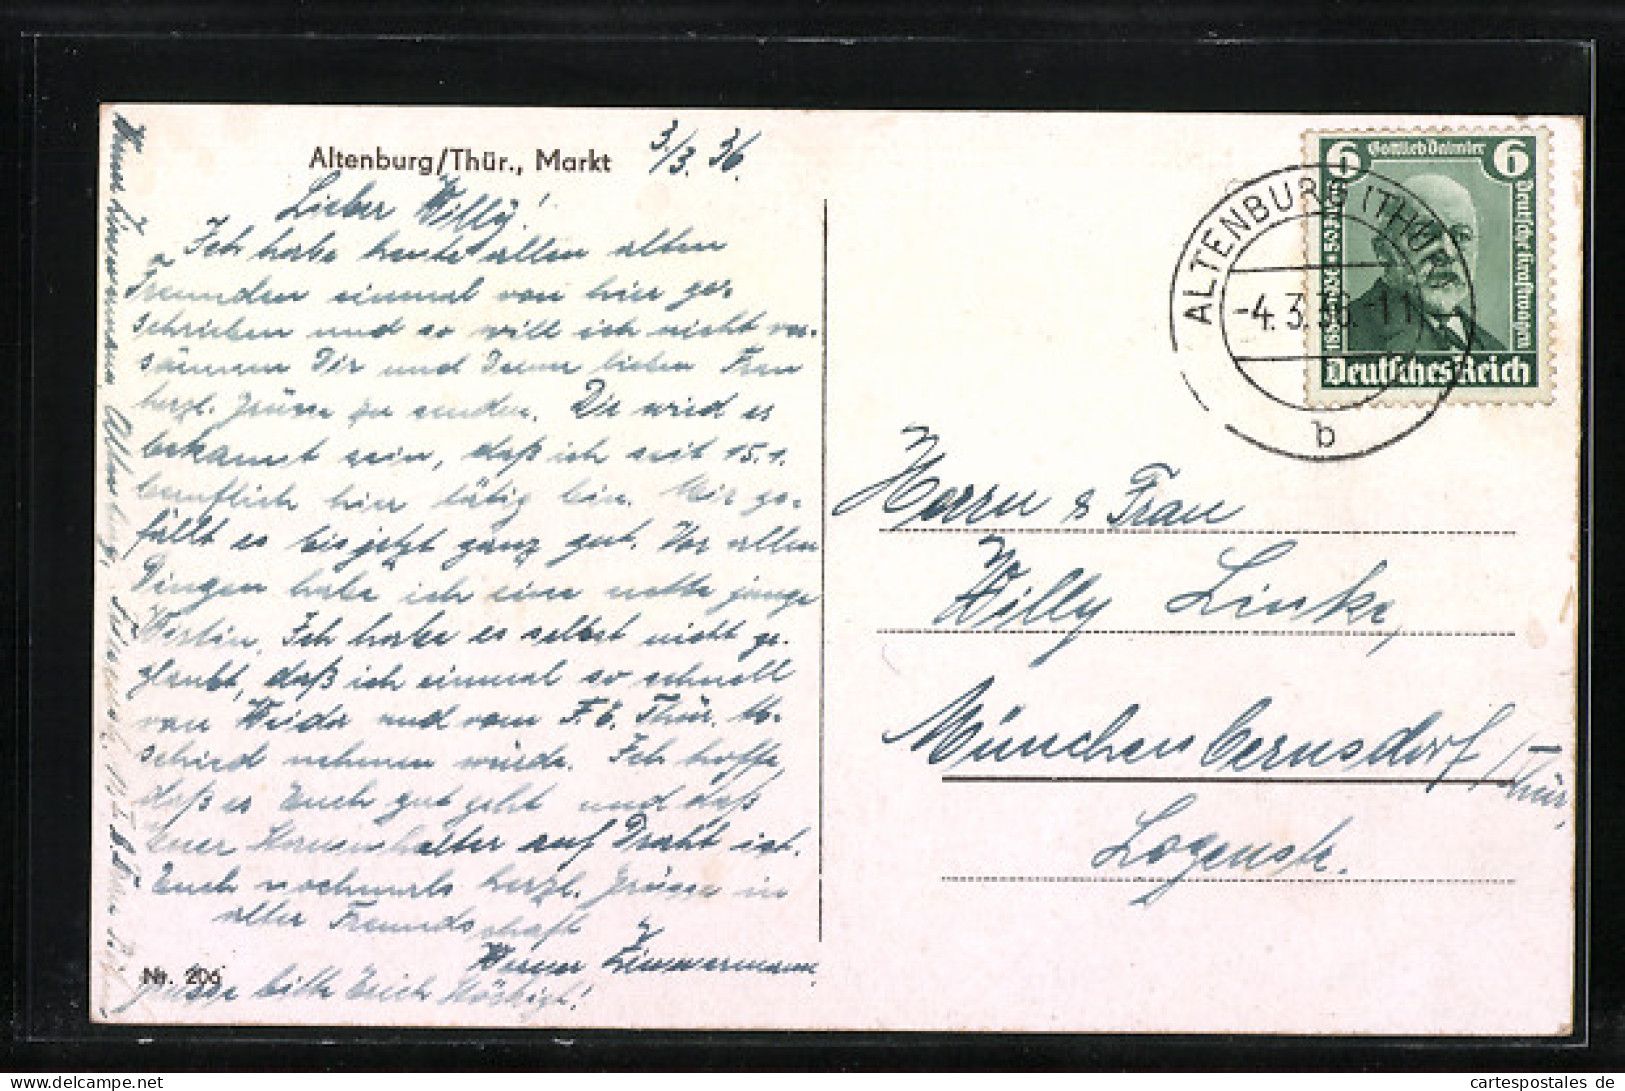 Altenburg/Thür., Markt
3/3. 36.
Lieber Willy!
Ich habe heute allen alten
Freunden einmal von hier ge-
schrieben und so will ich nicht ver-
säumen Dir und Deiner lieben Frau
herzl. Grüsse zu senden. Dir wird es
bekannt sein, daß ich seit 15.1.
beruflich hier tätig bin. Mir ge-
fällt es bis jetzt ganz gut. Vor allen
Dingen habe ich eine nette junge
Wirtin. Ich habe es selbst nicht ge-
glaubt, daß ich einmal so schnell
von Weida und vom F.C. Thür. Ab-
schied nehmen würde. Ich hoffe,
daß es Euch gut geht und daß
Euer Stammhalter auf Draht ist.
Euch nochmals herzl. Grüsse in
alter Freundschaft
Werner Zimmermann.
Grüsse bitte Erich
Nr. 206
Werner Zimmermann Altenburg,
6 Gottlieb Daimler 6
Deutsches Reich
ALTENBURG (THÜR)
-4.3.36.-11
b
Herrn & Frau
Willy Linke,
Münchenbernsdorf/Thür.
Logenstr.
cartespostales de